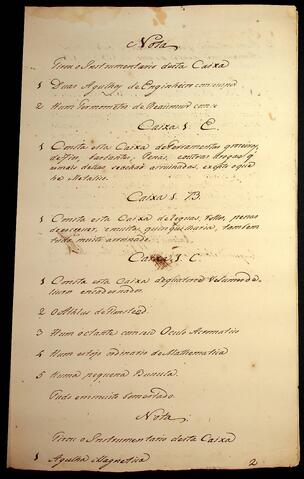 Nota
Tirou o Instrumentario desta Caixa
1 Duas Agulhas de Engenheiro com
2 Hum Termometro de Reaimur com
Caixa 1. C.
1 Consta esta Caixa de ferramentas
de fio, barbantes, Penas, e outras drogas q
e mais dellas se achão arruinadas, exceto o que
he Metalico.
Caixa 1. B.
1 Consta esta Caixa de Legoas, penas
de escrever, e muitas quinquilharia, tambem
tudo muito arruinado.
Caixa 1. C
1 Consta esta Caixa de quatorze Volumes de
Livros encadernados.
2 O Athlas de
3 Hum octante com seu Oculo Acromatico
4 Hum estojo ordinario de Mathematica
5 Huma pequena Bussula.
Tudo em muito bom estado.
Nota.
Tirou o Instrumentario desta Caixa
1 Agulha Magnetica
2